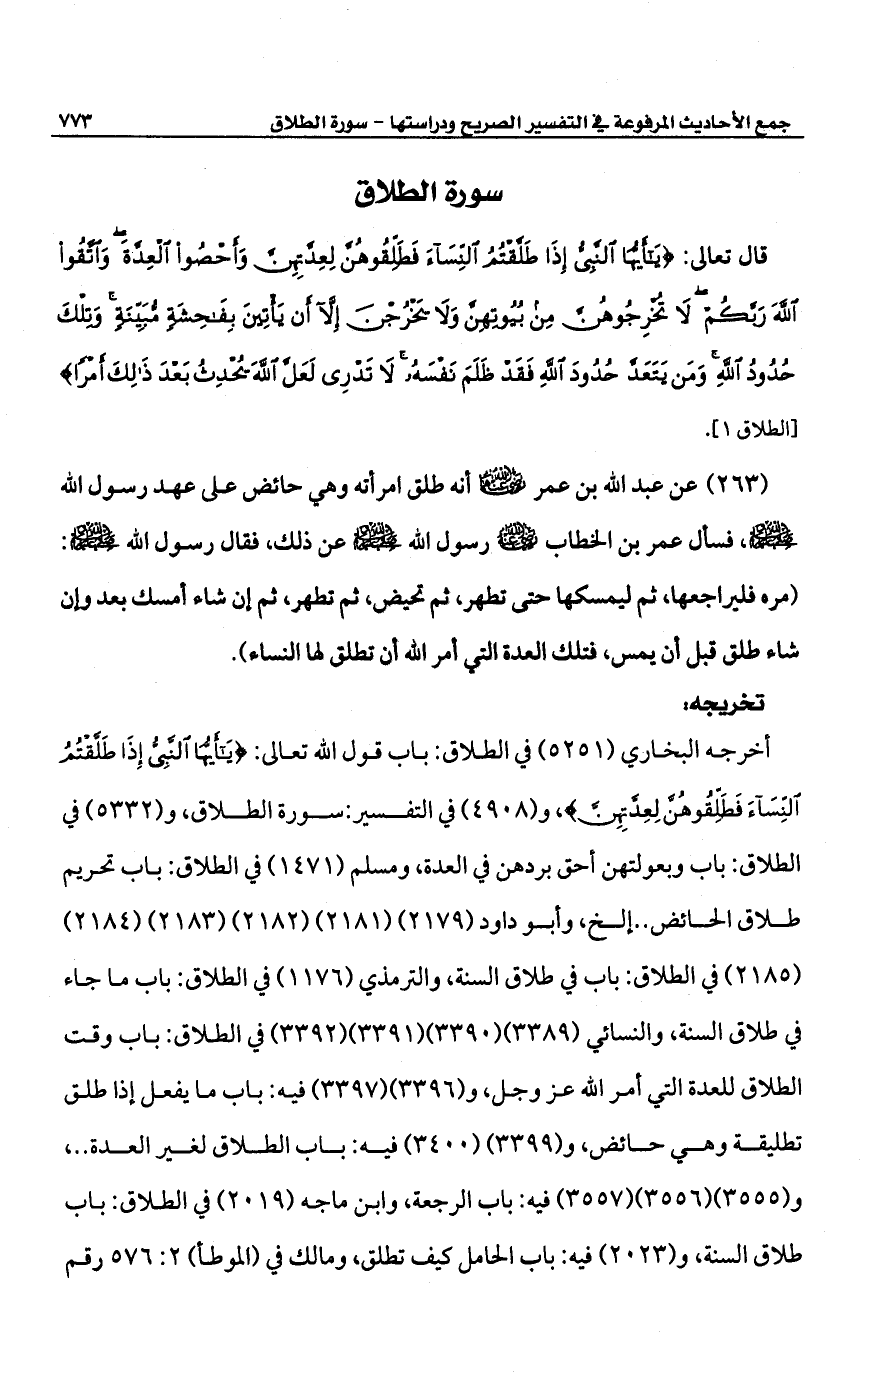 جمع الأحاديث المرفوعة في التفسير الصريح ودراستها - سورة الطلاق ٧٧٣
سورة الطلاق
قال تعالى: ﴿يَٰٓأَيُّهَا ٱلنَّبِىُّ إِذَا طَلَّقْتُمُ ٱلنِّسَآءَ فَطَلِّقُوهُنَّ لِعِدَّتِهِنَّ وَأَحْصُوا۟ ٱلْعِدَّةَ ۖ وَٱتَّقُوا۟
ٱللَّهَ رَبَّكُمْ ۖ لَا تُخْرِجُوهُنَّ مِنۢ بُيُوتِهِنَّ وَلَا يَخْرُجْنَ إِلَّآ أَن يَأْتِينَ بِفَٰحِشَةٍ مُّبَيِّنَةٍ ۚ وَتِلْكَ
حُدُودُ ٱللَّهِ ۚ وَمَن يَتَعَدَّ حُدُودَ ٱللَّهِ فَقَدْ ظَلَمَ نَفْسَهُۥ ۚ لَا تَدْرِى لَعَلَّ ٱللَّهَ يُحْدِثُ بَعْدَ ذَٰلِكَ أَمْرًا﴾
[الطلاق ١].
(٢٦٣) عن عبد الله بن عمر رضي الله عنهما أنه طلق امرأته وهي حائض على عهد رسول الله
ﷺ، فسأل عمر بن الخطاب رضي الله عنه رسول الله ﷺ عن ذلك، فقال رسول الله ﷺ:
(مره فليراجعها، ثم ليمسكها حتى تطهر، ثم تحيض، ثم تطهر، ثم إن شاء أمسك بعد وإن
شاء طلق قبل أن يمس، فتلك العدة التي أمر الله أن تطلق لها النساء).
تخريجه:
أخرجه البخاري (٥٢٥١) في الطلاق: باب قول الله تعالى: ﴿يَٰٓأَيُّهَا ٱلنَّبِىُّ إِذَا طَلَّقْتُمُ
ٱلنِّسَآءَ فَطَلِّقُوهُنَّ لِعِدَّتِهِنَّ﴾، و(٤٩٠٨) في التفسير:سورة الطلاق، و(٥٣٣٢) في
الطلاق: باب وبعولتهن أحق بردهن في العدة، ومسلم (١٤٧١) في الطلاق: باب تحريم
طلاق الحائض..إلخ، وأبو داود (٢١٧٩) (٢١٨١) (٢١٨٢) (٢١٨٣) (٢١٨٤)
(٢١٨٥) في الطلاق: باب في طلاق السنة، والترمذي (١١٧٦) في الطلاق: باب ما جاء
في طلاق السنة، والنسائي (٣٣٨٩)(٣٣٩٠)(٣٣٩١)(٣٣٩٢) في الطلاق: باب وقت
الطلاق للعدة التي أمر الله عز وجل، و(٣٣٩٦)(٣٣٩٧) فيه: باب ما يفعل إذا طلق
تطليقة وهي حائض، و(٣٣٩٩) (٣٤٠٠) فيه: باب الطلاق لغير العدة..،
و(٣٥٥٥)(٣٥٥٦)(٣٥٥٧) فيه: باب الرجعة، وابن ماجه (٢٠١٩) في الطلاق: باب
طلاق السنة، و(٢٠٢٣) فيه: باب الحامل كيف تطلق، ومالك في (الموطأ) ٢: ٥٧٦ رقم